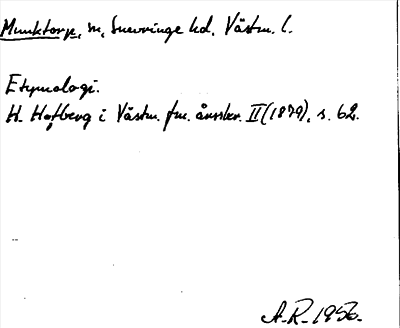 Munktorp, sn, Snevringe hd, Västm. l.
Etymologi.
H. Hofberg i Västm. fm. årsskr. II (1879), s. 62.
A.R. 1956.